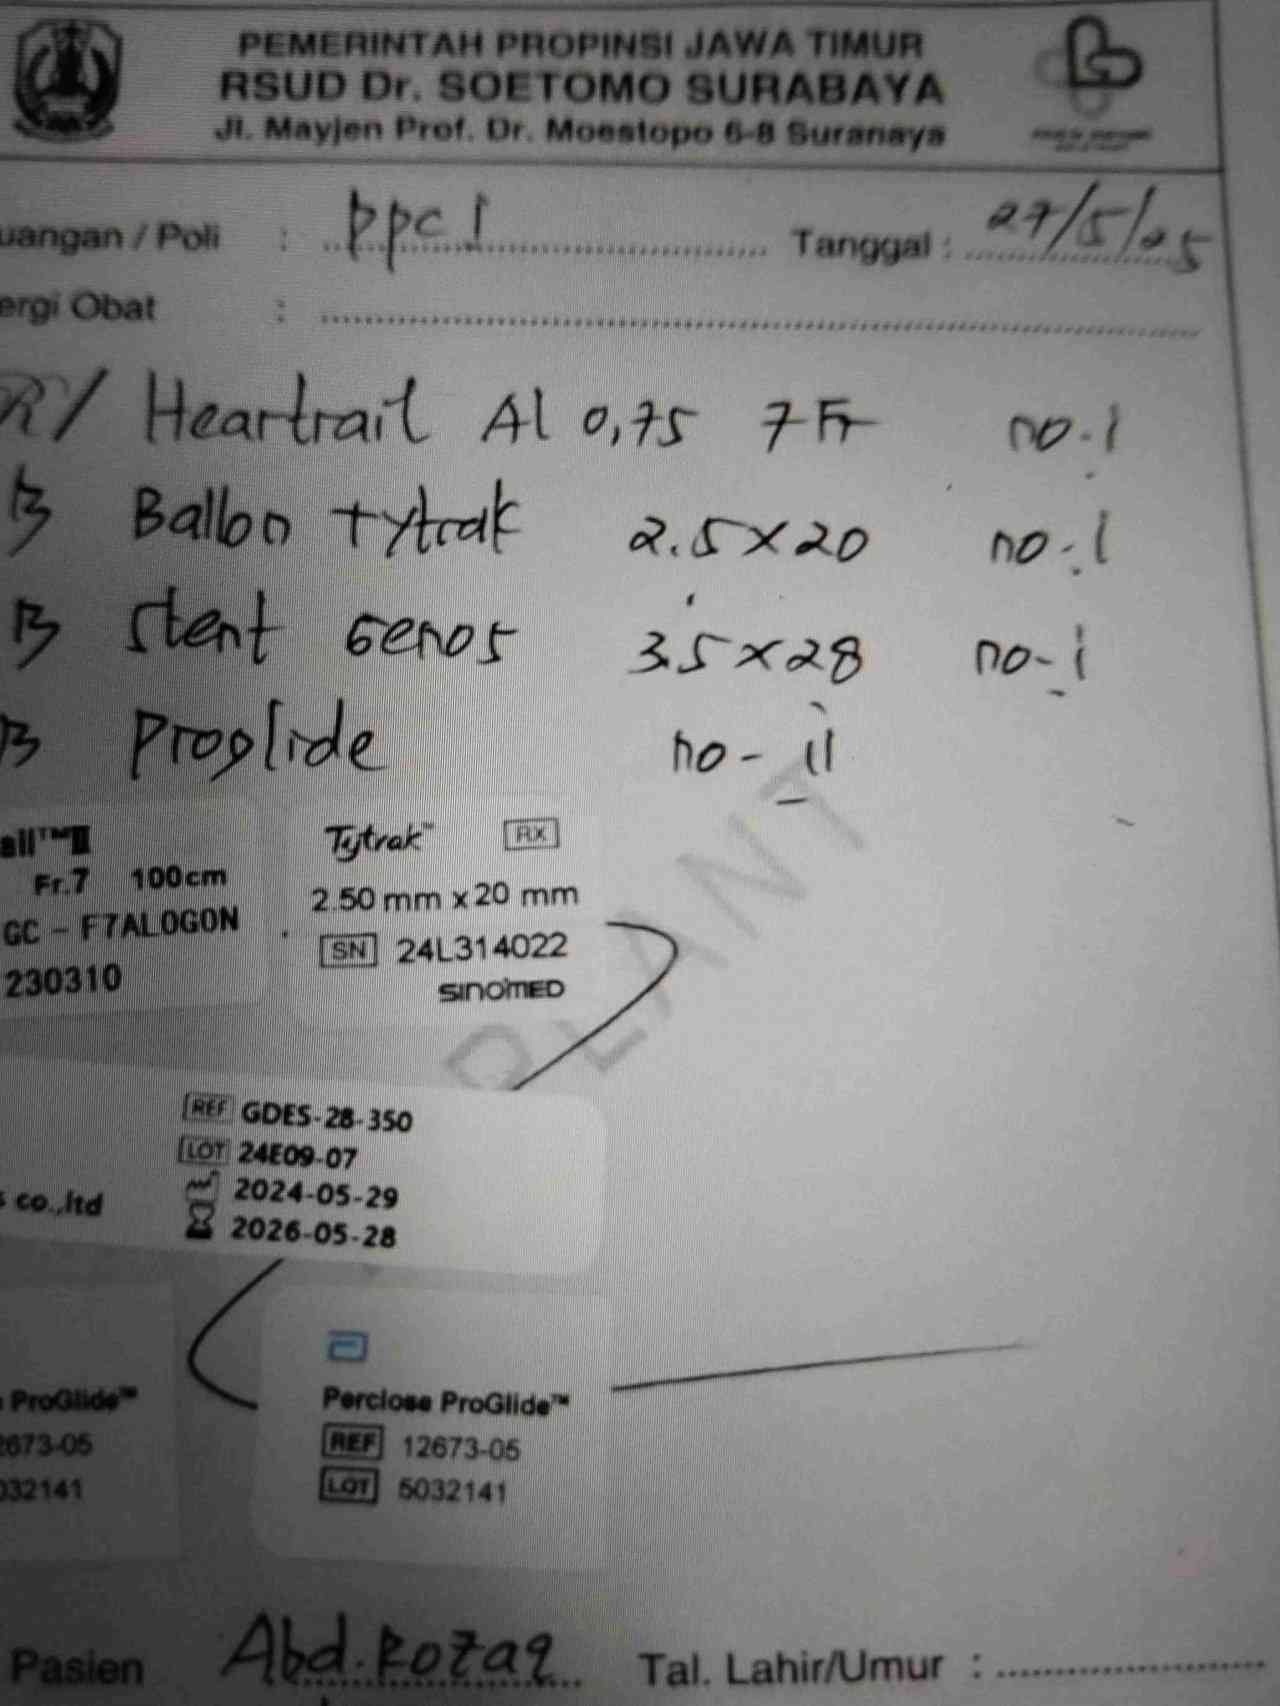 PEMERINTAH PROPINSI JAWA TIMUR
RSUD Dr. SOETOMO SURABAYA
Jl. Mayjen Prof. Dr. Moestopo 6-8 Suranaya
uangan / Poli : ppc I Tanggal : 27/5/25
ergi Obat :
R/ Heartrail Al 0,75 7 Fr no. i
Ballon tytrak 2.5 x 20 no. i
Stent Genos 3.5 x 28 no - i
Proglide no - ii
ail™II
Fr.7 100cm
GC - F7AL0G0N
230310
Tytrak™ RX
2.50 mm x 20 mm
SN 24L314022
SINOMED
PLANT
REF GDES-28-350
LOT 24E09-07
s co.,ltd
2024-05-29
2026-05-28
ProGlide™
2673-05
032141
Perclose ProGlide™
REF 12673-05
LOT 5032141
Pasien Abd. Rozaq Tal. Lahir/Umur :